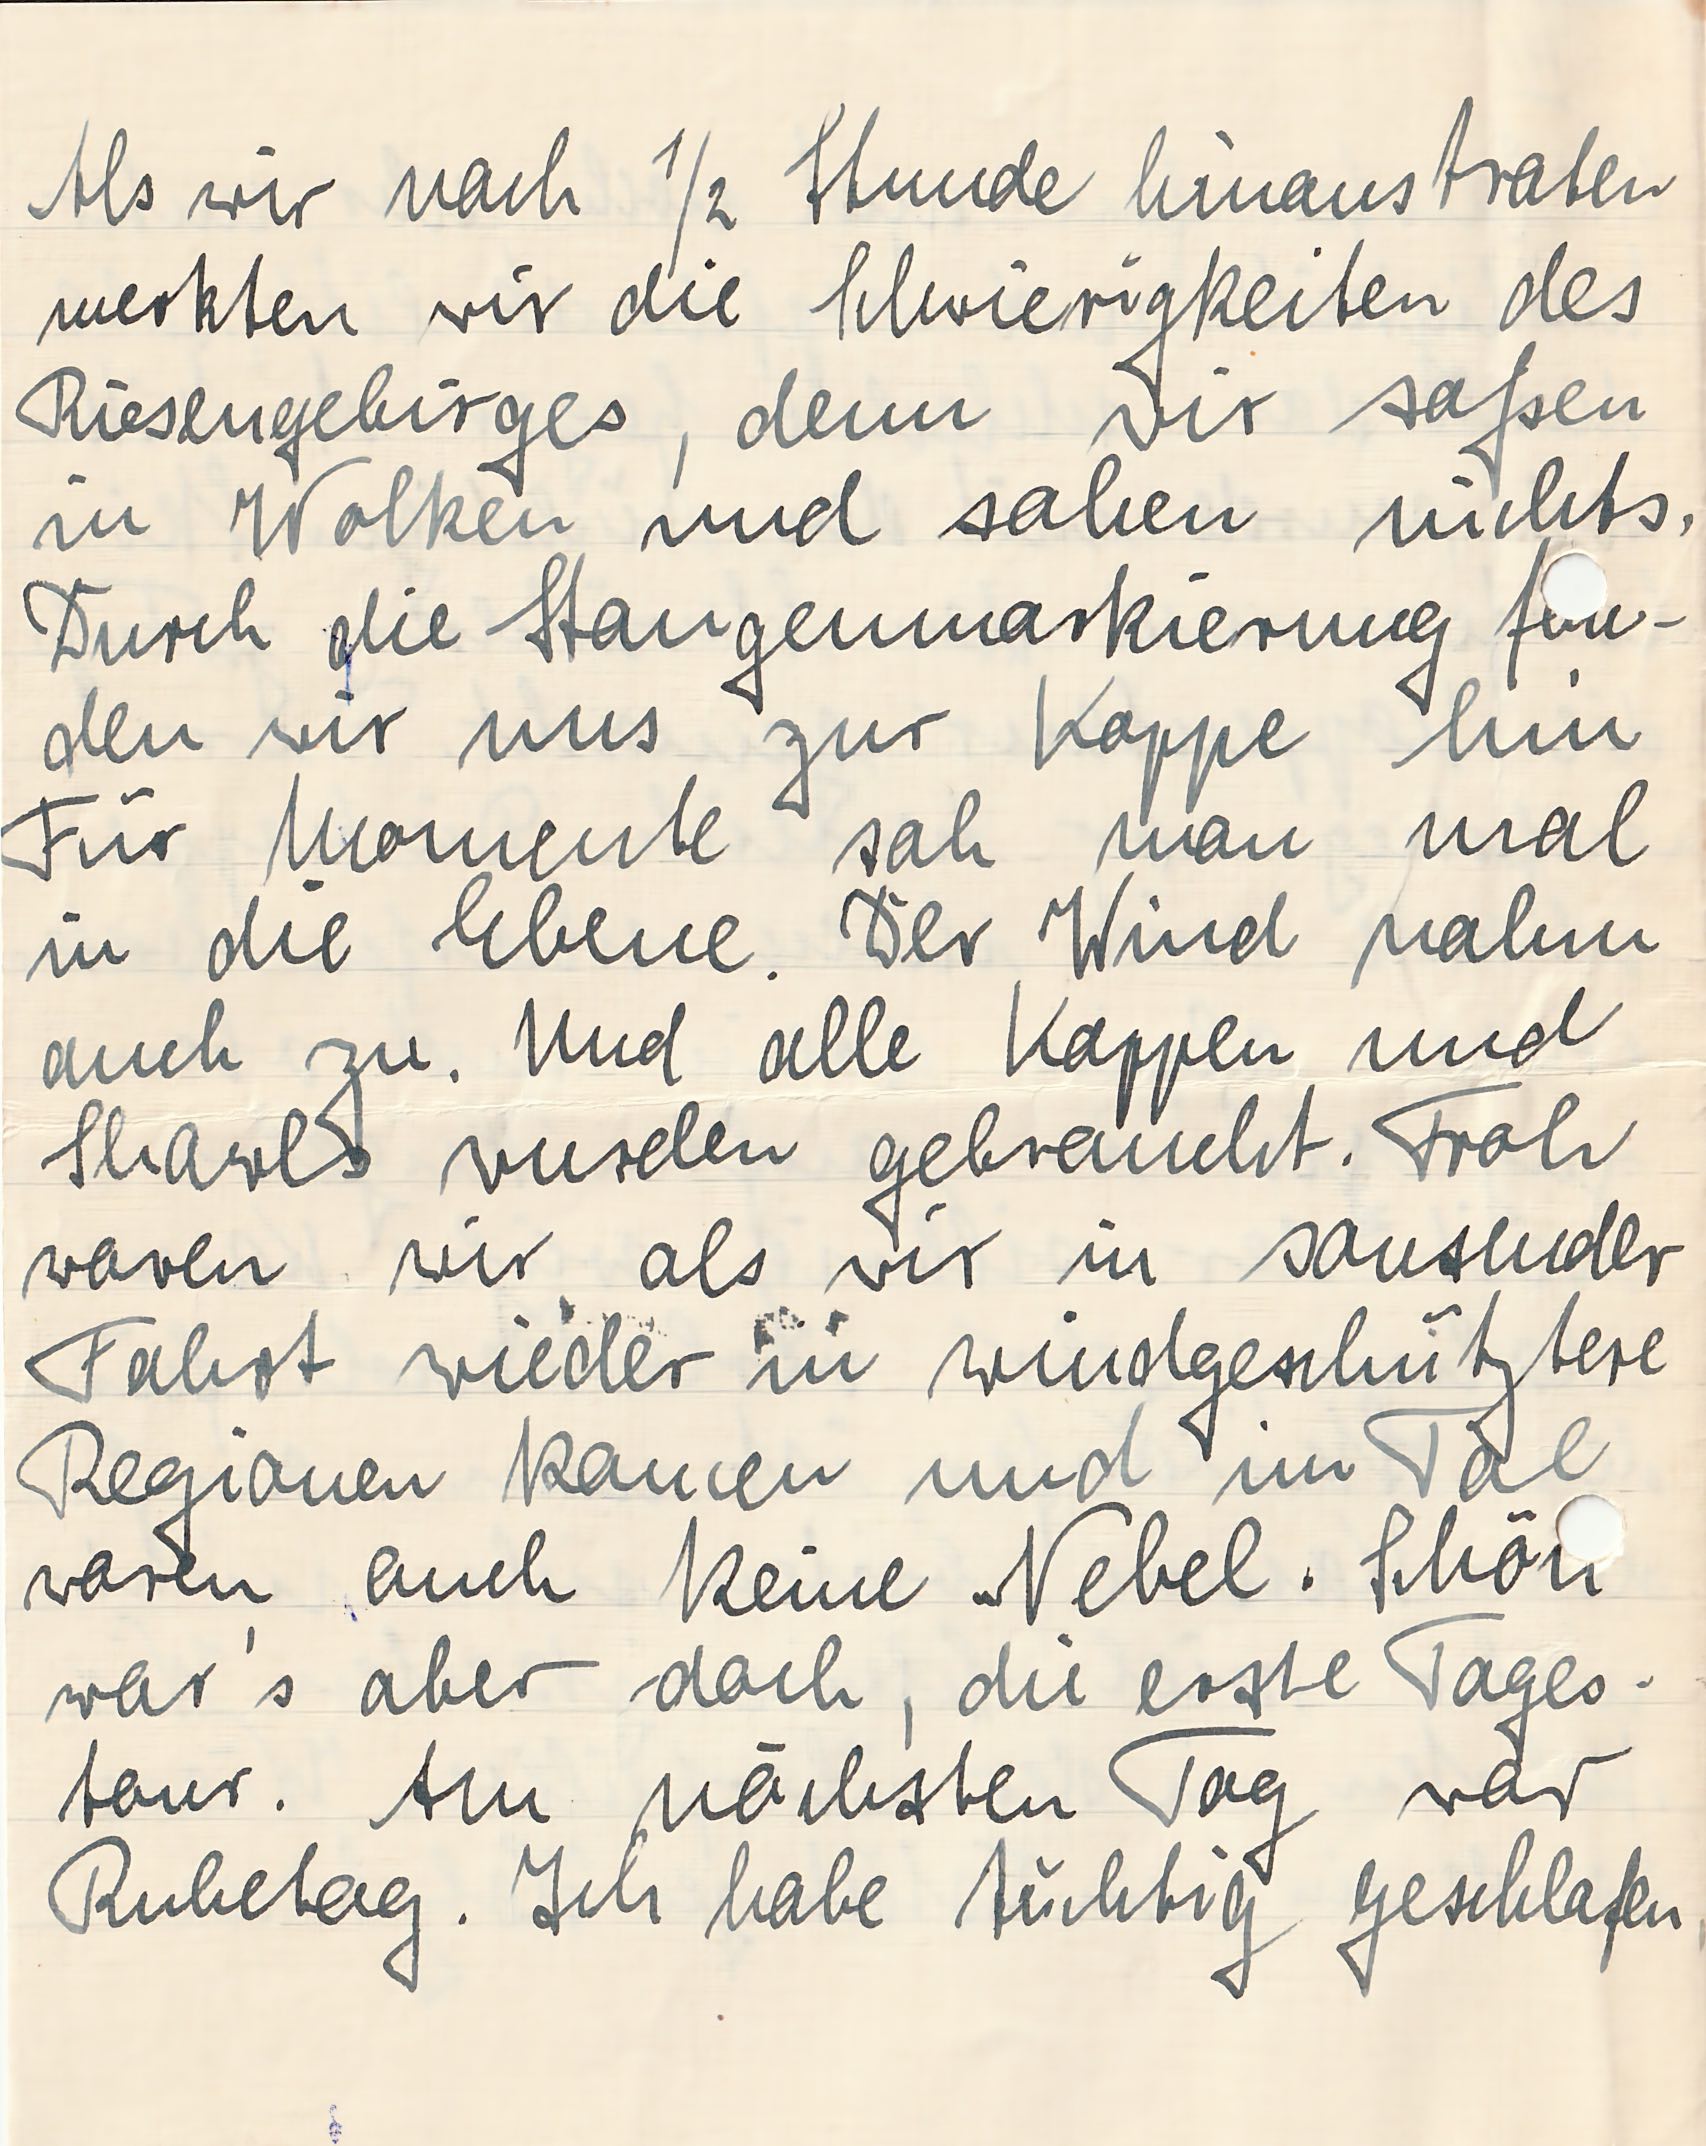 Als wir nach 1/2 Stunde hinaustraten
merkten wir die Schwierigkeiten des
Riesengebirges, denn wir saßen
in Wolken und sahen nichts.
Durch die Stangenmarkierung fan-
den wir uns zur Koppe hin
Für Momente sah man mal
in die Ebene. Der Wind nahm
auch zu. Und alle Kappen und
Shawls wurden gebraucht. Froh
waren wir als wir in sausender
Fahrt wieder in windgeschütztere
Regionen kamen und im Tal
waren auch keine Nebel. Schön
war's aber doch, die erste Tages-
tour. Am nächsten Tag war
Ruhetag. Ich habe tüchtig geschlafen,